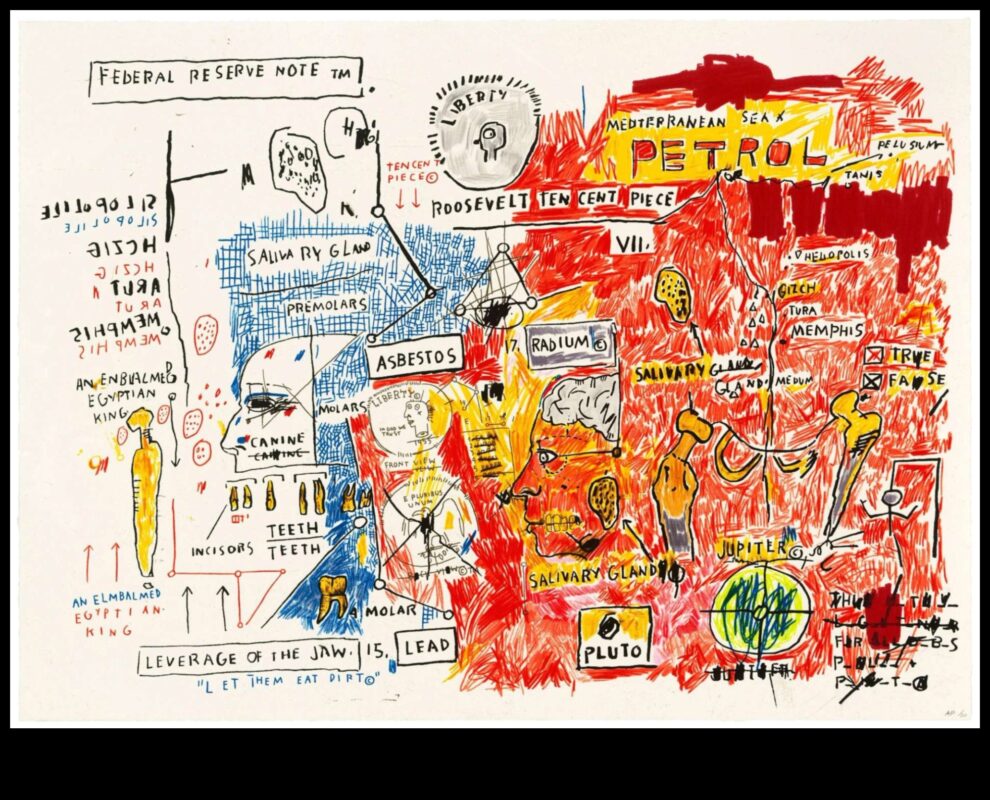 FEDERAL RESERVE NOTE TM
LIBERTY
MEDITERRANEAN SEA
PETROL
PELUSIUM
TANIS
H
M
TEN CENT
PIECE©
ROOSEVELT TEN CENT PIECE
VII.
SALIVARY GLAND
PREMOLARS
HELIOPOLIS
GIZCH
TURA
MEMPHIS
MEMPHIS
MEMPHIS
ASBESTOS
17.
RADIUM©
SALIVARY GLAND
GLAND
MEDUM
TRUE
FALSE
AN ENBALMED
EGYPTIAN
KING
MOLARS
CANINE
CANINE
LIBERTY
IN GOD WE
TRUST
FRONT VIEW
E PLURIBUS
UNUM
INCISORS
TEETH
TEETH
SALIVARY GLAND
JUPITER
AN ELMBALMED
EGYPTIAN.
KING
4 MOLAR
LEVERAGE OF THE JAW.
15.
LEAD
PLUTO
JUPITER
"LET THEM EAT DIRT©"